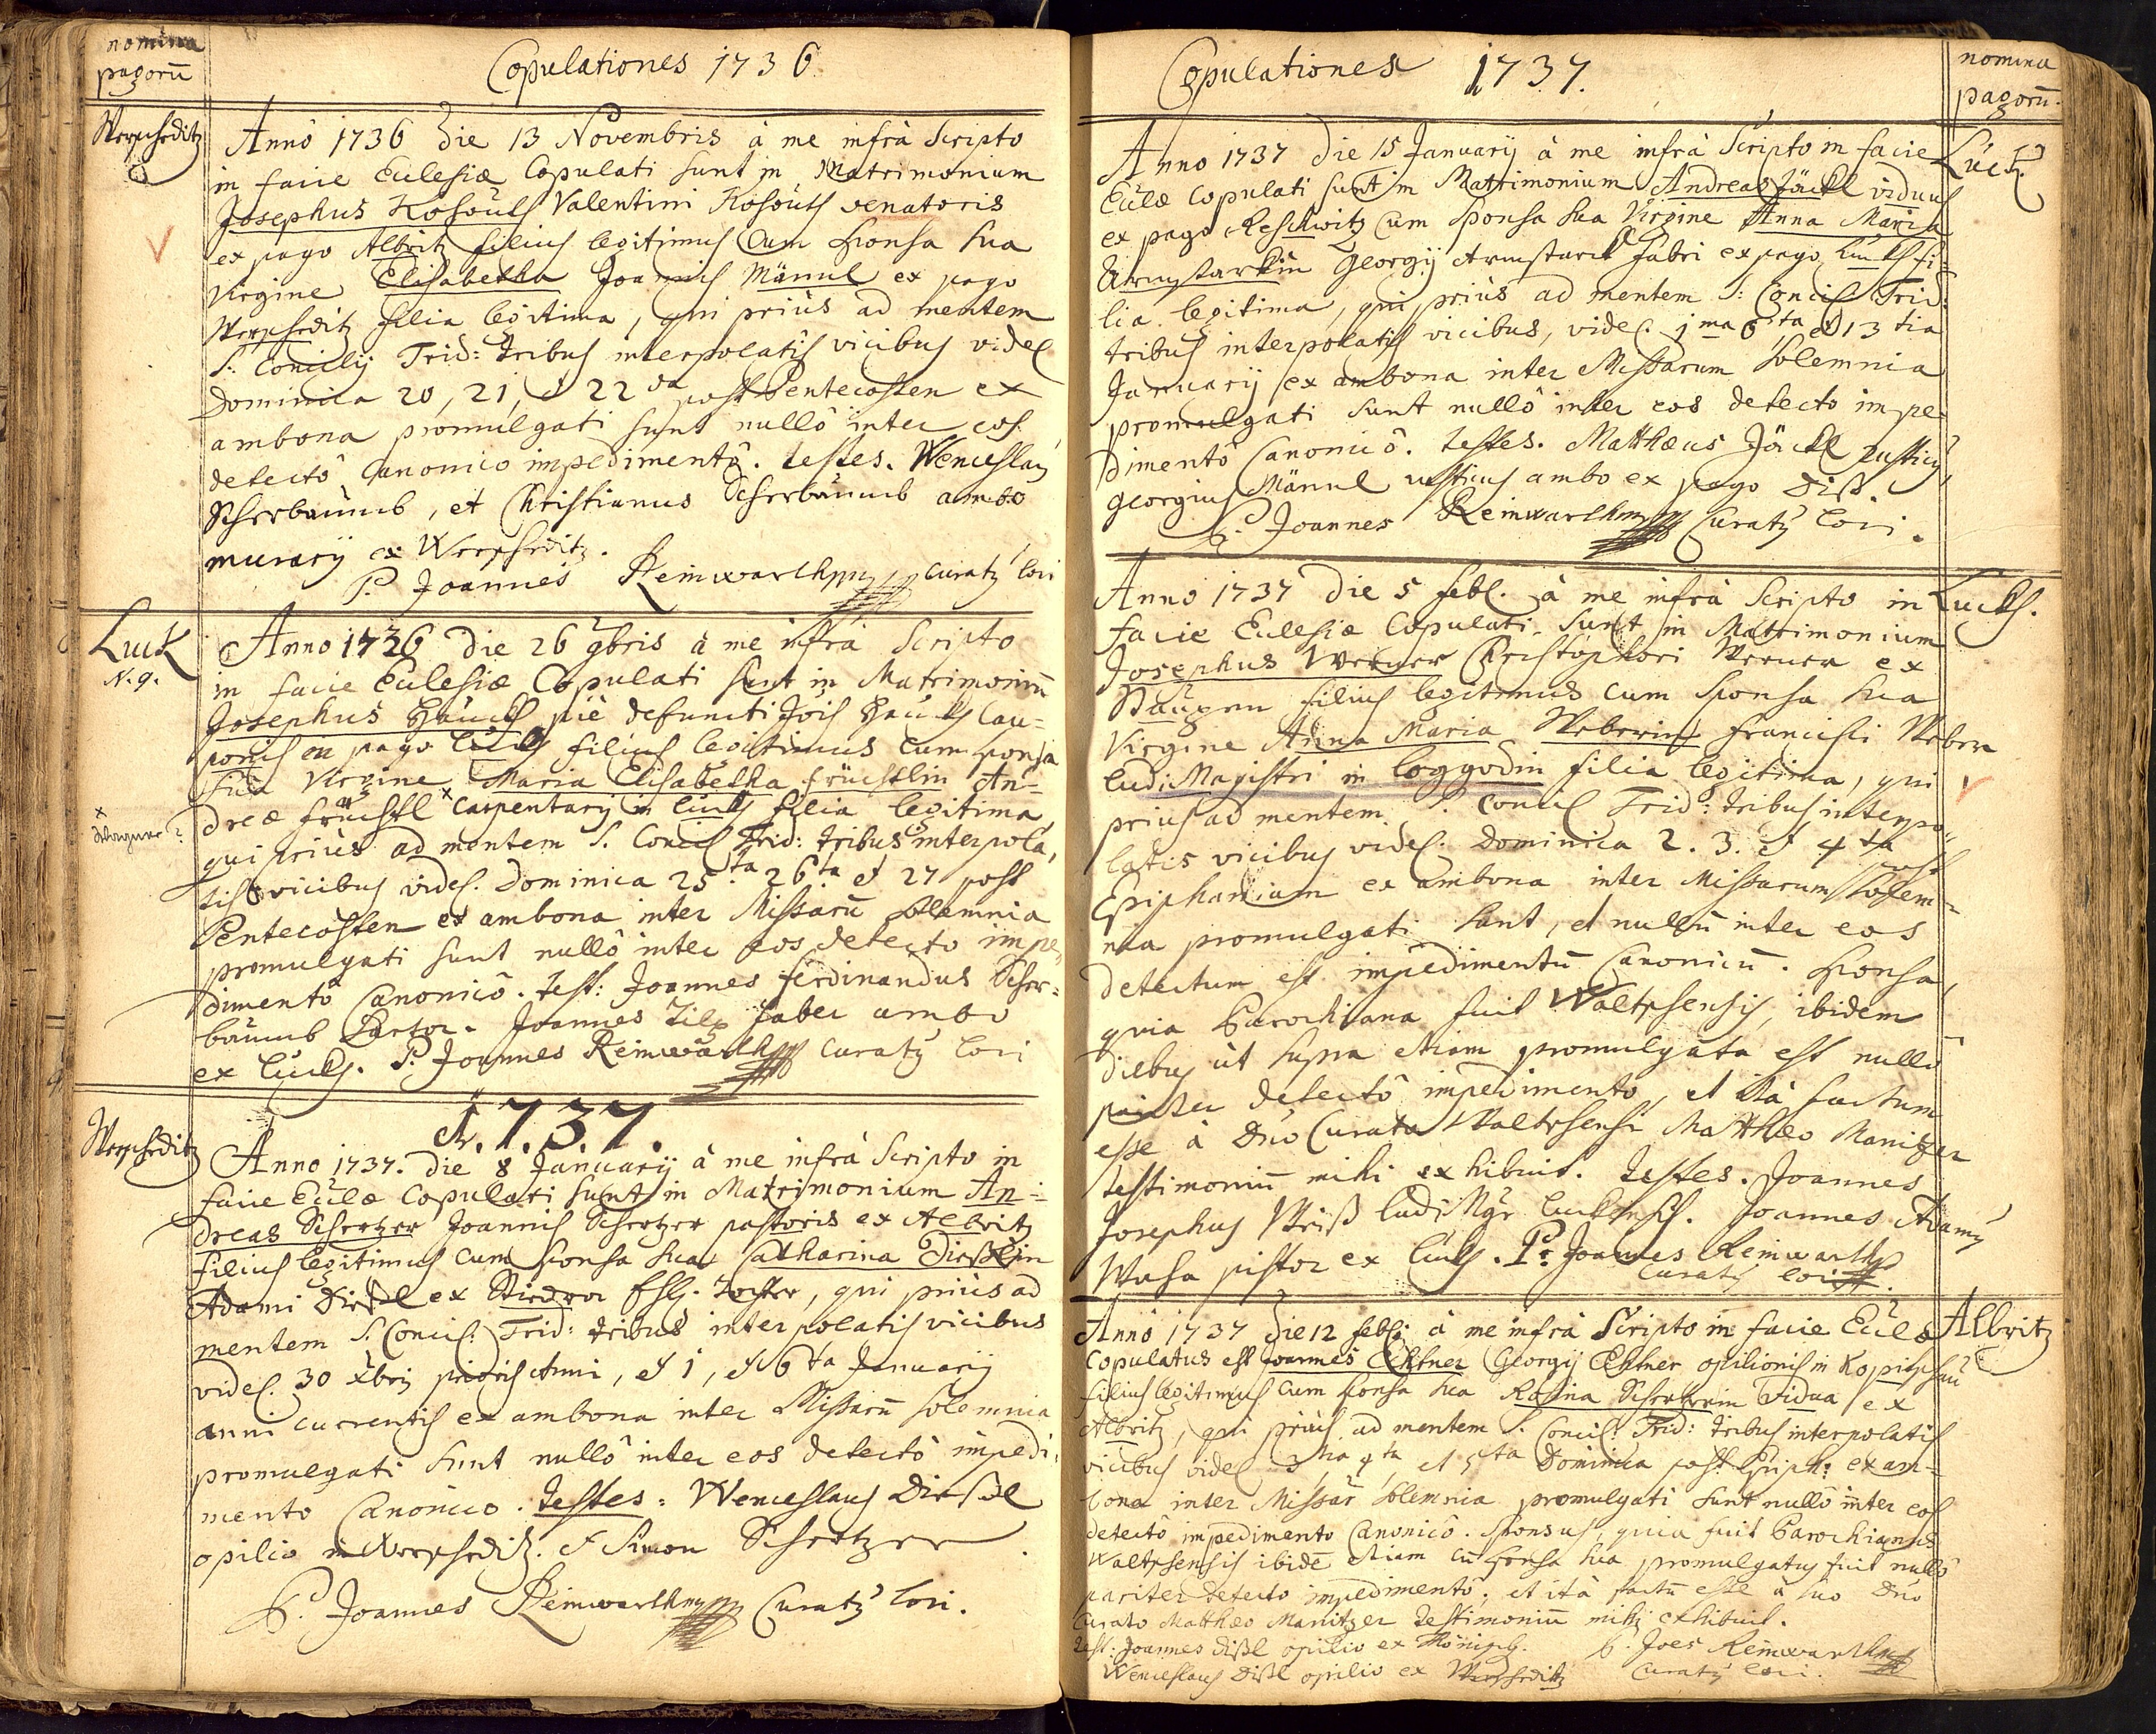 nomina
pagorũ
Copulationes 1736
Werscheditz
Anno 1736 Die 13 Novembris à me infrà Scripto
in facie Ecclesiæ Copulati sunt in Matrimonium
Josephus Kohoutt Valentini Kohoutt venatoris
ex pago Albritz filius legitimus Cum Sponsa sua
Virgine Elisabetha Joannis Männl ex pago
Werscheditz filia legitima, qui priùs ad mentem
S: Concilij Trid: tribus interpolatis vicibus videl
Dominica 20, 21, et 22da post Pentecosten ex
ambona promulgati sunt nullô inter eos
detectô Canonico impedimentô. testes. Wenceslaus
Scherbaumb, et Christianus Scherbaumb ambo
murarij ex Werscheditz.
P. Joannes Reinwarth Curatꝫ loci
Luck
N. 9.
Anno 1736 Die 26 9bris à me infrà Scripto
in facie Ecclesiæ Copulati sunt in Matrimoniũ
Josephus Hauck piè defuncti Jois Hauck Cau-
ponis in pago Luck filius legitimus cum sponsa
sua Virgine Maria Elisabetha früchtlin An-
dreæ früchtl x Carpentarij in Luck filia legitima,
x
Wagner?
qui priùs ad mentem S. Concil Trid: tribus interpola,
tis vicibus videl. Dominica 25ta 26ta et 27 post
Pentecosten ex ambona inter Missarũ solemnia
promulgati sunt nullô inter eos detecto impe,
dimentô Canonicô. test: Joannes ferdinandus Scher-
baumb Sartor. Joannes Zilg faber ambo
ex Luck. P. Joannes Reinwarth Curatꝫ loci
A. 1.7.3.7.
Werscheditz
Anno 1737. Die 8 Januarij à me infrà Scripto in
facie Ecclæ Copulati sunt in Matrimonium An-
dreas Schertzer Joannis Schertzer pastoris ex Albritz
filius legitimus cum sponsa sua Catharina Dießlin
Adami Dießl ex Stiedra Ehl. Tochter, qui priùs ad
mentem S. Concil: Trid: tribus interpolatis vicibus
videl. 30 xbris prioris Anni, et 1, et 6ta Januarij
anni currentis ex ambona inter Missarũ solemnia
promulgati sunt nullô inter eos detectô impedi-
mento Canonico. testes: Wenceslaus Dießl
opilio in Werscheditz. et Simon Schertzer
P. Joannes Reinwarth Curatꝫ loci.
Copulationes 1737.
nomina
pagorũ.
Luck
Anno 1737 Die 15 Januarij à me infrà Scripto in facie
Ecclæ Copulati sunt in Matrimonium Andreas Jäckl viduus
ex pago Reschwitz Cum sponsa sua Virgine Anna Maria
Armstarkin Georgij Armstarck fabri ex pago Luck fi-
lia legitima, qui priùs ad mentem S: Concil Trid:
tribus interpolatis vicibus, videl. 1ma 6ta et 13tia
Januarij ex ambona inter Missarum solemnia
promulgati sunt nullô inter eos detecto impe-
dimentô Canonicô. testes. Matthæus Jäckl rusticus,
Georgius Männl rusticus ambo ex pago Diß.
P. Joannes Reinwarth Curatꝫ loci.
Luck.
Anno 1737 Die 5 febl. à me infrà Scripto in
facie Ecclesiæ Copulati sunt in Matrimonium
Josephus Werner Christophori Werner ex
Staugen filius legitimus cum sponsa sua
Virgine Anna Maria Weberin francisci Weber
ludi Magistri in loggodin filia legitima, qui
prius ad mentem S. Concil Trid: tribus interpo,
latis vicibus videl. Dominica 2. 3. et 4ta post
Epiphaniam ex ambona inter Missarum solem-
nia promulgati sunt, et nullũ inter eos
detectum est impedimentũ Canonicũ. Sponsa,
quia Parochiana fuit Waltschensis, ibidem
diebus ut supra etiam promulgata est nullô
pariter detectô impedimento, et ità factum
esse à Dno Curato Waltschensi Matthæo Manitzer
testimoniũ mihi exhibuit. testes. Joannes
Josephus Weiß ludi Mgr luckensis. Joannes Adamꝫ
Wasa pistor ex Luck. P. Joannes Reinwarth
Curatꝫ loci
Albritz
Anno 1737 Die 12 febl: à me infrà Scripto in facie Ecclæ
Copulatus est Joannes Ehtner Georgij Ehtner opilionis in Kopitschau
filius legitimus cum sponsa sua Rosina Schertzerin vidua ex
Albritz, qui priùs ad mentem S. Concil: Trid: tribus interpolatis
vicibus videl 3tia 4ta et 5ta Dominica post Epiph: ex am-
bona inter Missar solemnia promulgati sunt nullô inter eos
detectô impedimento Canonicô. Sponsus, quia fuit Parochianus
Waltschensis ibidẽ etiam cũ sponsa sua promulgatus fuit nullô
pariter detecto impedimentô; et ità factũ esse à suo Dno
Curato Matthæo Manitzer testimoniũ mihi exhibuit.
test: Joannes Dißl opilio ex P. Joes Reinwarth
Wenceslaus Dißl opilio ex Werscheditz Curatꝫ loci.